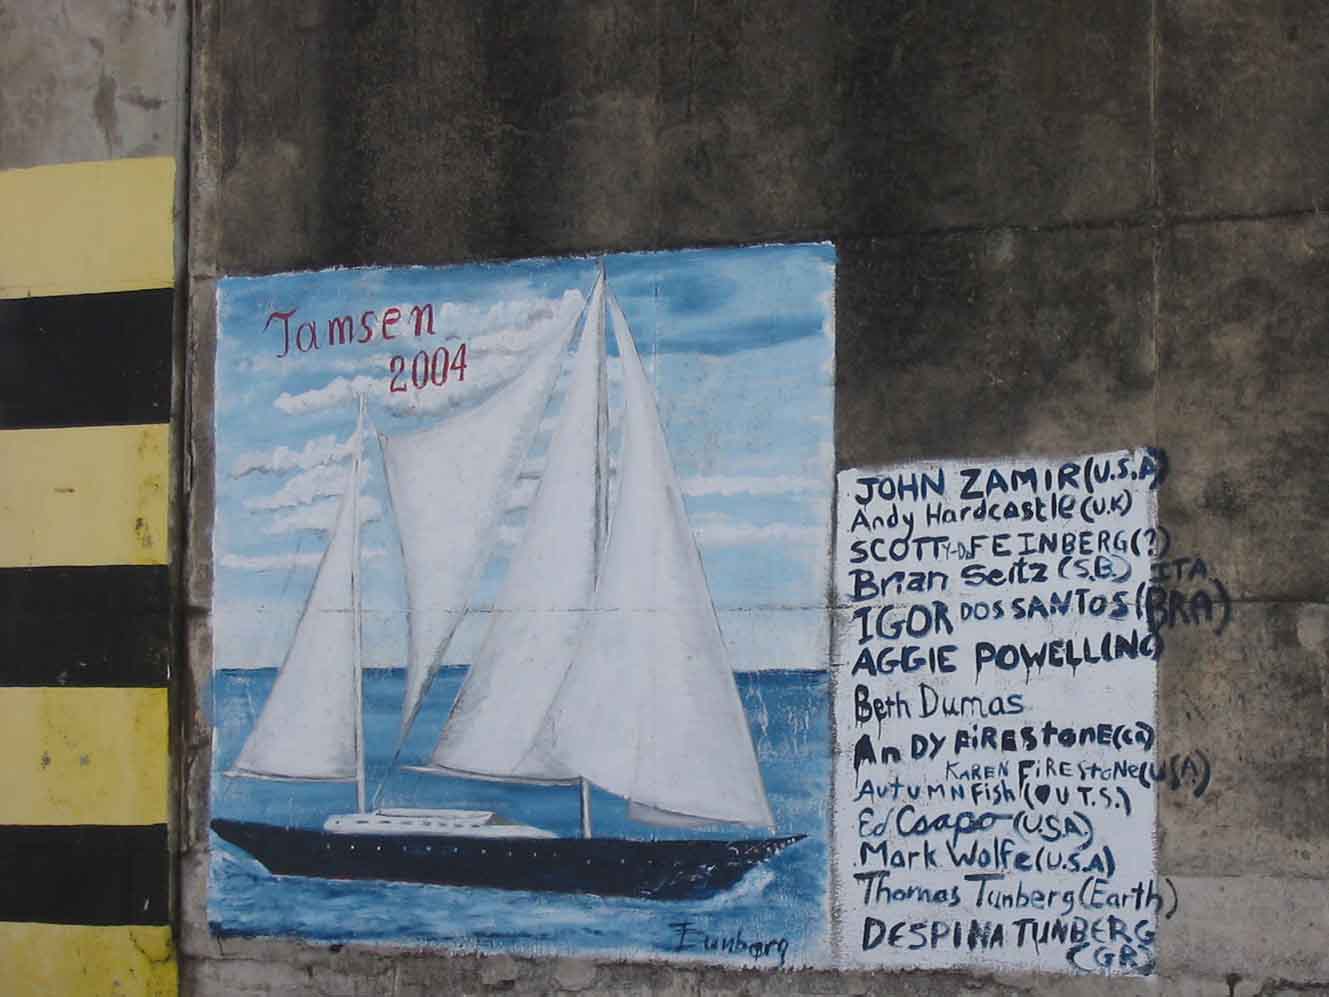 Tamsen
2004
JOHN ZAMIR (U.S.A)
Andy Hardcastle (U.K)
SCOTTY-Do FEINBERG (?)
Brian Seitz (S.B.) ITA
IGOR DOS SANTOS (BRA)
AGGIE POWELL (NC)
Beth Dumas
AnDY FiREStonE (ca)
KAREN FiREStoNe (USA)
AUTUMN Fish (♥ U T.S.)
Ed Csapo (USA)
Mark Wolfe (U.S.A)
Thomas Tunberg (Earth)
DESPINA TUNBERG
(GR)